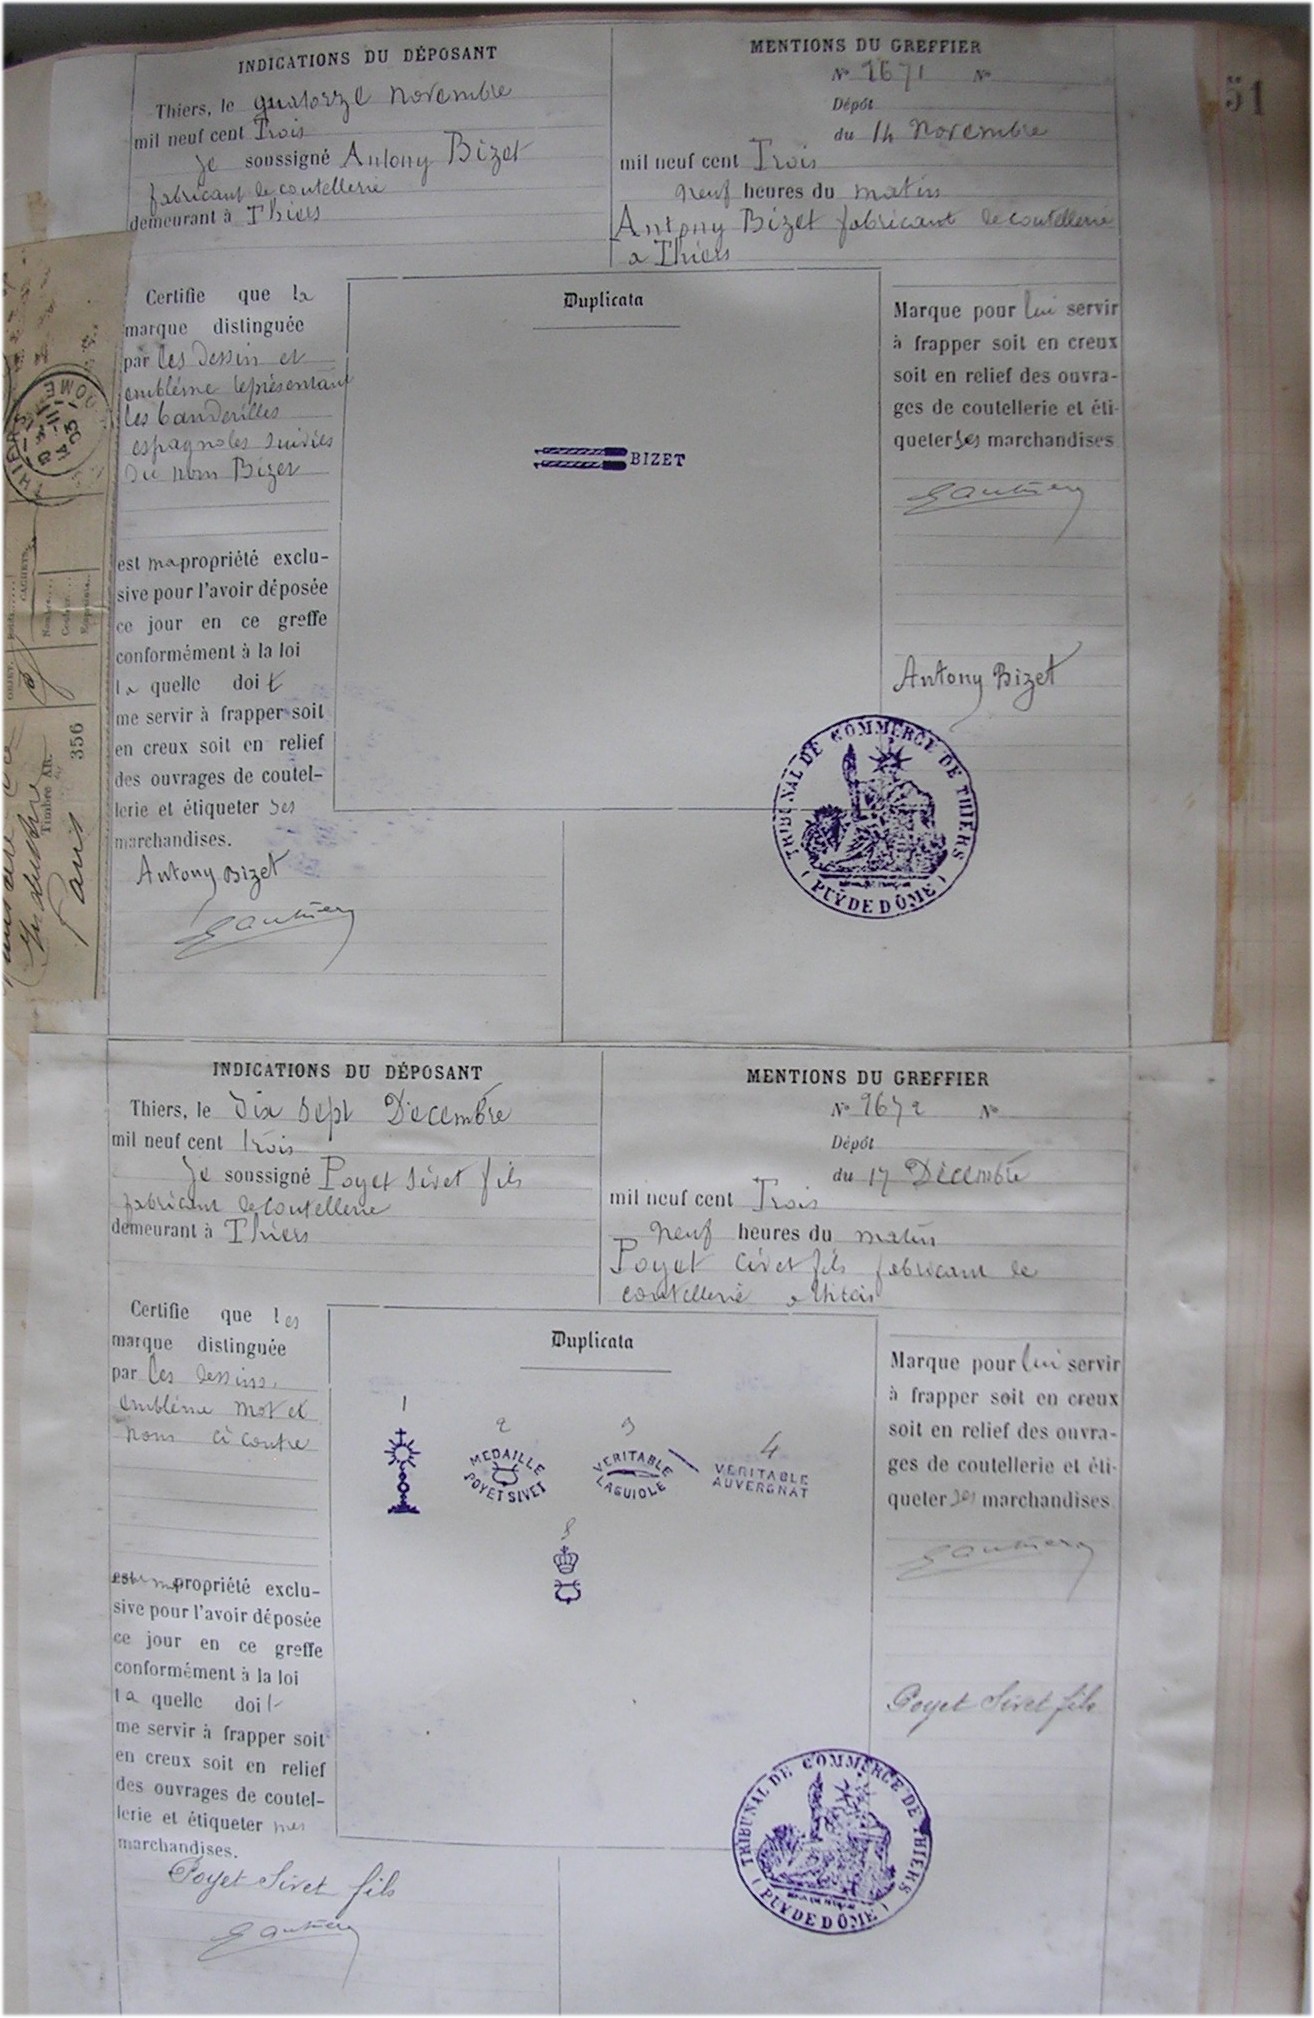 51
INDICATIONS DU DÉPOSANT
Thiers, le quatorze novembre
mil neuf cent Trois
Je soussigné Antony Bizet
fabricant de coutellerie
demeurant à Thiers
MENTIONS DU GREFFIER
No 1671 No
Dépôt
du 14 Novembre
mil neuf cent Trois
neuf heures du matin
Antony Bizet fabricant de coutellerie
a Thiers
Certifie que la
marque distinguée
par les dessin et
emblême représentant
les banderilles
espagnoles suivies
du nom Bizet
est ma propriété exclu-
sive pour l'avoir déposée
ce jour en ce greffe
conformément à la loi
la quelle doit
me servir à frapper soit
en creux soit en relief
des ouvrages de coutel-
lerie et étiqueter ses
marchandises.
Antony Bizet
Duplicata
BIZET
Marque pour lui servir
à frapper soit en creux
soit en relief des ouvra-
ges de coutellerie et éti-
queter ses marchandises
Antony Bizet
TRIBUNAL DE COMMERCE DE THIERS
(PUY DE DÔME)
THIERS
DOME
OBJET
CACHETS
Nombre....
Couleur....
Empreinte..
Timbre
356
Paris
INDICATIONS DU DÉPOSANT
Thiers, le dix sept Decembre
mil neuf cent trois
Je soussigné Poyet Sivet fils
fabricant de coutellerie
demeurant à Thiers
MENTIONS DU GREFFIER
No 1672 No
Dépôt
du 17 Décembre
mil neuf cent Trois
neuf heures du matin
Poyet Civet fils fabricant de
coutellerie a Thiers
Certifie que les
marque distinguée
par les dessins,
emblême mot et
noms ci contre
propriété exclu-
sive pour l'avoir déposée
ce jour en ce greffe
conformément à la loi
la quelle doit
me servir à frapper soit
en creux soit en relief
des ouvrages de coutel-
lerie et étiqueter mes
marchandises.
Poyet Sivet fils
Duplicata
1
2
MEDAILLE
POYET SIVET
3
VERITABLE
LAGUIOLE
4
VERITABLE
AUVERGNAT
Marque pour lui servir
à frapper soit en creux
soit en relief des ouvra-
ges de coutellerie et éti-
queter ses marchandises
Poyet Sivet fils
TRIBUNAL DE COMMERCE DE THIERS
(PUY DE DÔME)